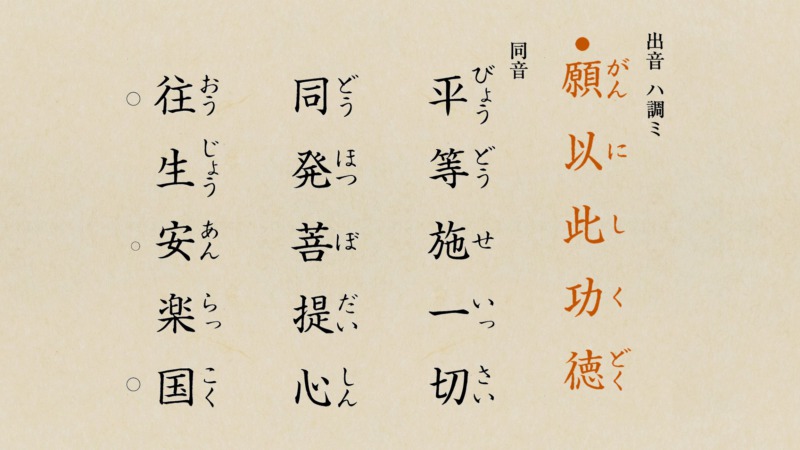 出音 ハ調ミ
●願以此功徳
がんにしくどく
同音
平等施一切
びょうどうせいっさい
同発菩提心
どうほつぼだいしん
○往生○安楽○国
おうじょうあんらっこく